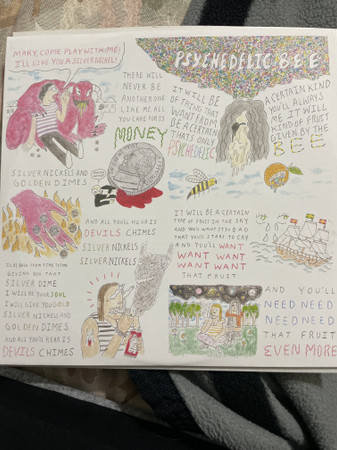 MARY, COME PLAY WITH ME!
I'LL GIVE YOU A SILVER NICKEL!
THERE WILL
NEVER BE
ANOTHER ONE
LIKE ME ALL
YOU CARE FOR IS
MONEY
SILVER NICKELS AND
GOLDEN DIMES
AND ALL YOU'LL HEAR IS
DEVILS CHIMES
SILVER NICKELS
SILVER NICKELS
TIME TO TIME
GIVING YOU THAT
SILVER DIME
I WILL BE YOUR SOUL
I WILL GIVE YOU GOLD
SILVER NICKELS AND
GOLDEN DIMES
AND ALL YOU'LL HEAR IS
DEVILS CHIMES
PSYCHEDELIC BEE
IT WILL BE
OF THING THAT
WANT FROM
BE A CERTAIN
THATS ONLY
PSYCHEDELIC
A CERTAIN KIND
YOU'LL ALWAYS
ME IT WILL
KIND OF FRUIT
GIVEN BY THE
BEE
IT WILL BE A CERTAIN
TYPE OF FRUIT IN THE SKY
AND YOU'LL WANT IT SO BAD
THAT YOU'LL START TO CRY
AND YOU'LL WANT
WANT WANT
WANT WANT
THAT FRUIT
AND YOU'LL
NEED NEED
NEED NEED
THAT FRUIT
EVEN MORE